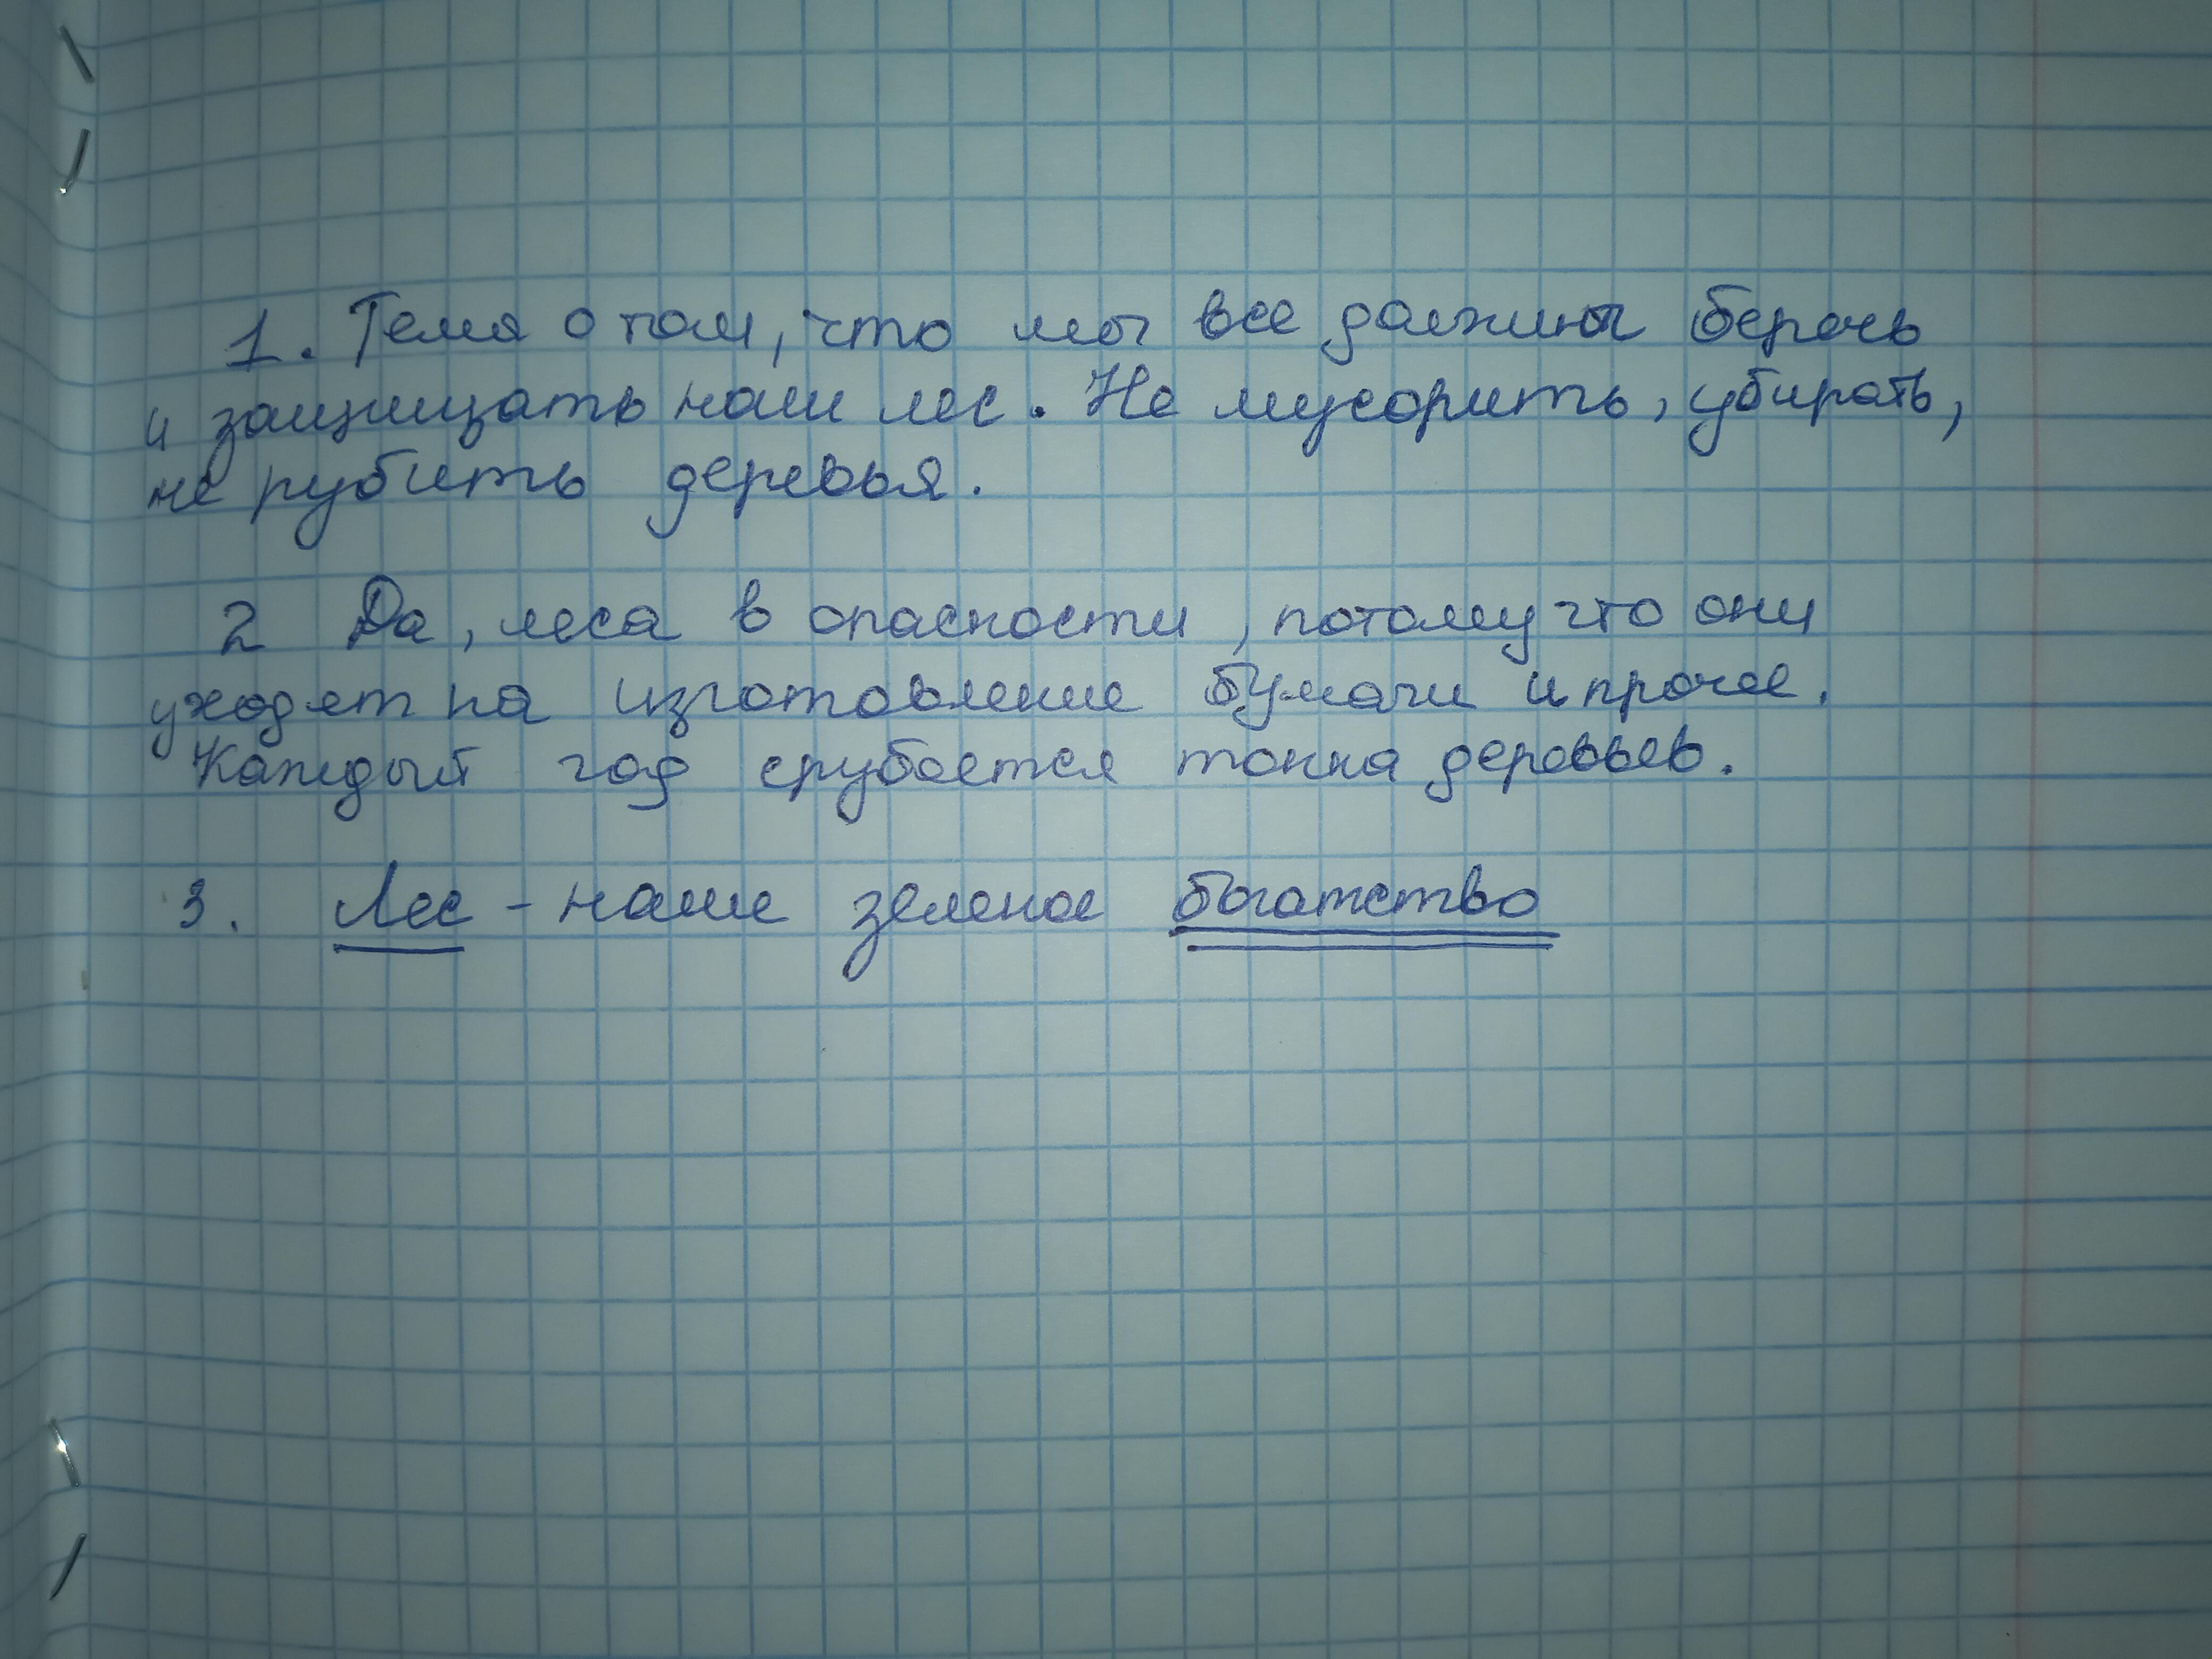 1. Тема о том, что мы все должны беречь
и защищать наш лес. Не мусорить, убирать,
не рубить деревья.
2 Да, леса в опасности, потому что они
уходят на изготовление бумаги и прочее.
Каждый год срубается тонна деревьев.
3. Лес - наше зеленое богатство